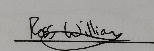 Ross Williams